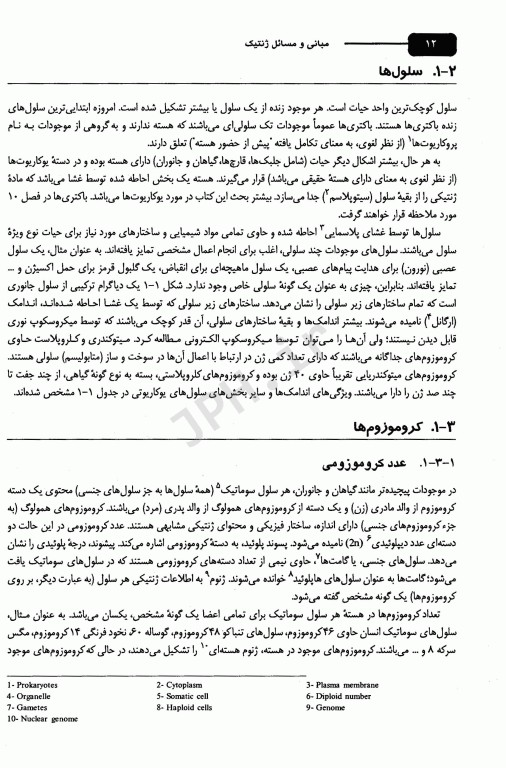 ۱۲
مبانی و مسائل ژنتیک
۱-۲. سلول‌ها
سلول کوچک‌ترین واحد حیات است. هر موجود زنده از یک سلول یا بیشتر تشکیل شده است. امروزه ابتدایی‌ترین سلول‌های
زنده باکتری‌ها هستند. باکتری‌ها عموماً موجودات تک سلولی‌ای می‌باشند که هسته ندارند و به گروهی از موجودات به نام
پروکاریوت‌ها۱ (از نظر لغوی، به معنای تکامل یافته "پیش از حضور هسته") تعلق دارند.
به هر حال، بیشتر اشکال دیگر حیات (شامل جلبک‌ها، قارچ‌ها، گیاهان و جانوران) دارای هسته بوده و در دستهٔ یوکاریوت‌ها
(از نظر لغوی به معنای دارای هستهٔ حقیقی می‌باشد) قرار می‌گیرند. هسته یک بخش احاطه شده توسط غشا می‌باشد که مادهٔ
ژنتیکی را از بقیهٔ سلول (سیتوپلاسم۲) جدا می‌سازد. بیشتر بحث این کتاب در مورد یوکاریوت‌ها می‌باشد. باکتری‌ها در فصل ۱۰
مورد ملاحظه قرار خواهند گرفت.
سلول‌ها توسط غشای پلاسمایی۳ احاطه شده و حاوی تمامی مواد شیمیایی و ساختارهای مورد نیاز برای حیات نوع ویژهٔ
سلول می‌باشند. سلول‌های موجودات چند سلولی، اغلب برای انجام اعمال مشخصی تمایز یافته‌اند. به عنوان مثال، یک سلول
عصبی (نورون) برای هدایت پیام‌های عصبی، یک سلول ماهیچه‌ای برای انقباض، یک گلبول قرمز برای حمل اکسیژن و ...
تمایز یافته‌اند. بنابراین، چیزی به عنوان یک گونهٔ سلولی خاص وجود ندارد. شکل ۱-۱ یک دیاگرام ترکیبی از سلول جانوری
است که تمام ساختارهای زیر سلولی را نشان می‌دهد. ساختارهای زیر سلولی که توسط یک غشا احاطه شده‌اند، اندامک
(ارگانل۴) نامیده می‌شوند. بیشتر اندامک‌ها و بقیهٔ ساختارهای سلولی، آن قدر کوچک می‌باشند که توسط میکروسکوپ نوری
قابل دیدن نیستند؛ ولی آن‌ها را می‌توان توسط میکروسکوپ الکترونی مطالعه کرد. میتوکندری و کلروپلاست حاوی
کروموزوم‌های جداگانه می‌باشند که دارای تعداد کمی ژن در ارتباط با اعمال آن‌ها در سوخت و ساز (متابولیسم) سلولی هستند.
کروموزوم‌های میتوکندریایی تقریباً حاوی ۴۰ ژن بوده و کروموزوم‌های کلروپلاستی، بسته به نوع گونهٔ گیاهی، از چند جفت تا
چند صد ژن را دارا می‌باشند. ویژگی‌های اندامک‌ها و سایر بخش‌های سلول‌های یوکاریوتی در جدول ۱-۱ مشخص شده‌اند.
۱-۳. کروموزوم‌ها
۱-۳-۱. عدد کروموزومی
در موجودات پیچیده‌تر مانند گیاهان و جانوران، هر سلول سوماتیک۵ (همهٔ سلول‌ها به جز سلول‌های جنسی) محتوی یک دسته
کروموزوم از والد مادری (زن) و یک دسته از کروموزوم‌های همولوگ از والد پدری (مرد) می‌باشند. کروموزوم‌های همولوگ (به
جزء کروموزوم‌های جنسی) دارای اندازه، ساختار فیزیکی و محتوای ژنتیکی مشابهی هستند. عدد کروموزومی در این حالت دو
دسته‌ای عدد دیپلوئیدی۶ (2n) نامیده می‌شود. پسوند پلوئید، به دستهٔ کروموزومی اشاره می‌کند. پیشوند، درجهٔ پلوئیدی را نشان
می‌دهد. سلول‌های جنسی، یا گامت‌ها۷، حاوی نیمی از تعداد دسته‌های کروموزومی هستند که در سلول‌های سوماتیک یافت
می‌شود؛ گامت‌ها به عنوان سلول‌های هاپلوئید۸ خوانده می‌شوند. ژنوم۹ به اطلاعات ژنتیکی هر سلول (به عبارت دیگر، بر روی
کروموزوم‌ها) یک گونه مشخص گفته می‌شود.
تعداد کروموزوم‌ها در هستهٔ هر سلول سوماتیک برای تمامی اعضا یک گونهٔ مشخص، یکسان می‌باشد. به عنوان مثال،
سلول‌های سوماتیک انسان حاوی ۴۶ کروموزوم، سلول‌های تنباکو ۴۸ کروموزوم، گوساله ۶۰، نخود فرنگی ۱۴ کروموزوم، مگس
سرکه ۸ و ... می‌باشند. کروموزوم‌های موجود در هسته، ژنوم هسته‌ای۱۰ را تشکیل می‌دهند، در حالی که کروموزوم‌های موجود
1- Prokaryotes 2- Cytoplasm 3- Plasma membrane
4- Organelle 5- Somatic cell 6- Diploid number
7- Gametes 8- Haploid cells 9- Genome
10- Nuclear genome